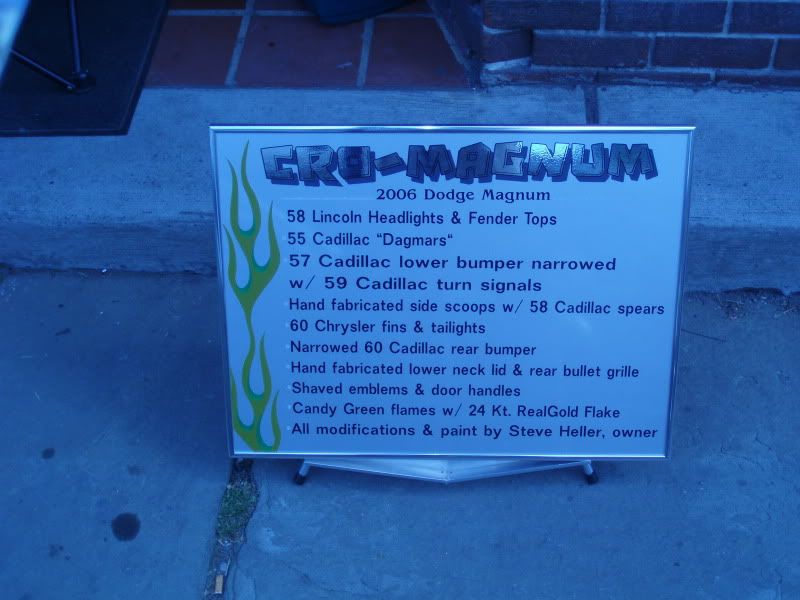 CRO-MAGNUM
2006 Dodge Magnum
58 Lincoln Headlights & Fender Tops
55 Cadillac "Dagmars"
57 Cadillac lower bumper narrowed
w/ 59 Cadillac turn signals
Hand fabricated side scoops w/ 58 Cadillac spears
60 Chrysler fins & tailights
Narrowed 60 Cadillac rear bumper
Hand fabricated lower neck lid & rear bullet grille
Shaved emblems & door handles
Candy Green flames w/ 24 Kt. RealGold Flake
All modifications & paint by Steve Heller, owner